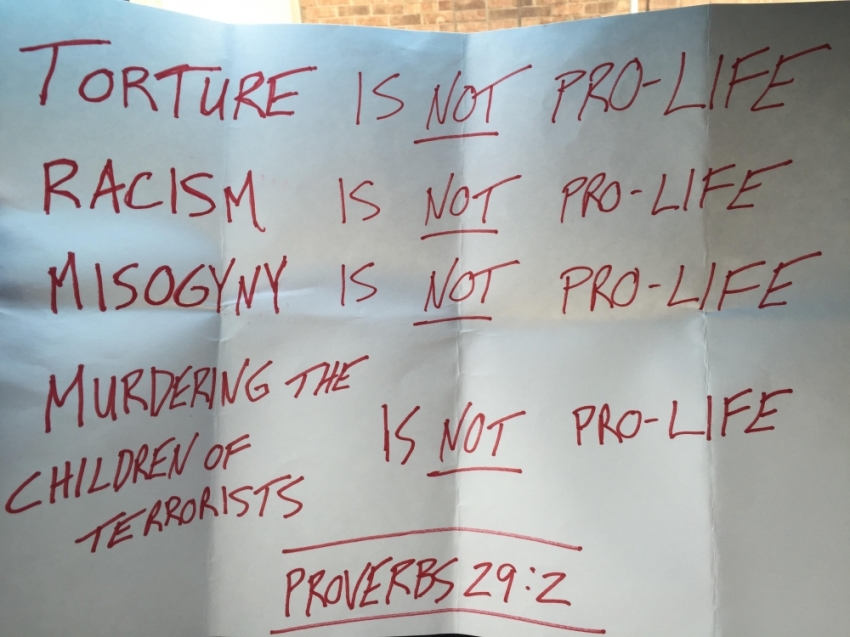 TORTURE IS NOT PRO-LIFE
RACISM IS NOT PRO-LIFE
MISOGYNY IS NOT PRO-LIFE
MURDERING THE
CHILDREN OF
TERRORISTS
IS NOT PRO-LIFE
PROVERBS 29:2